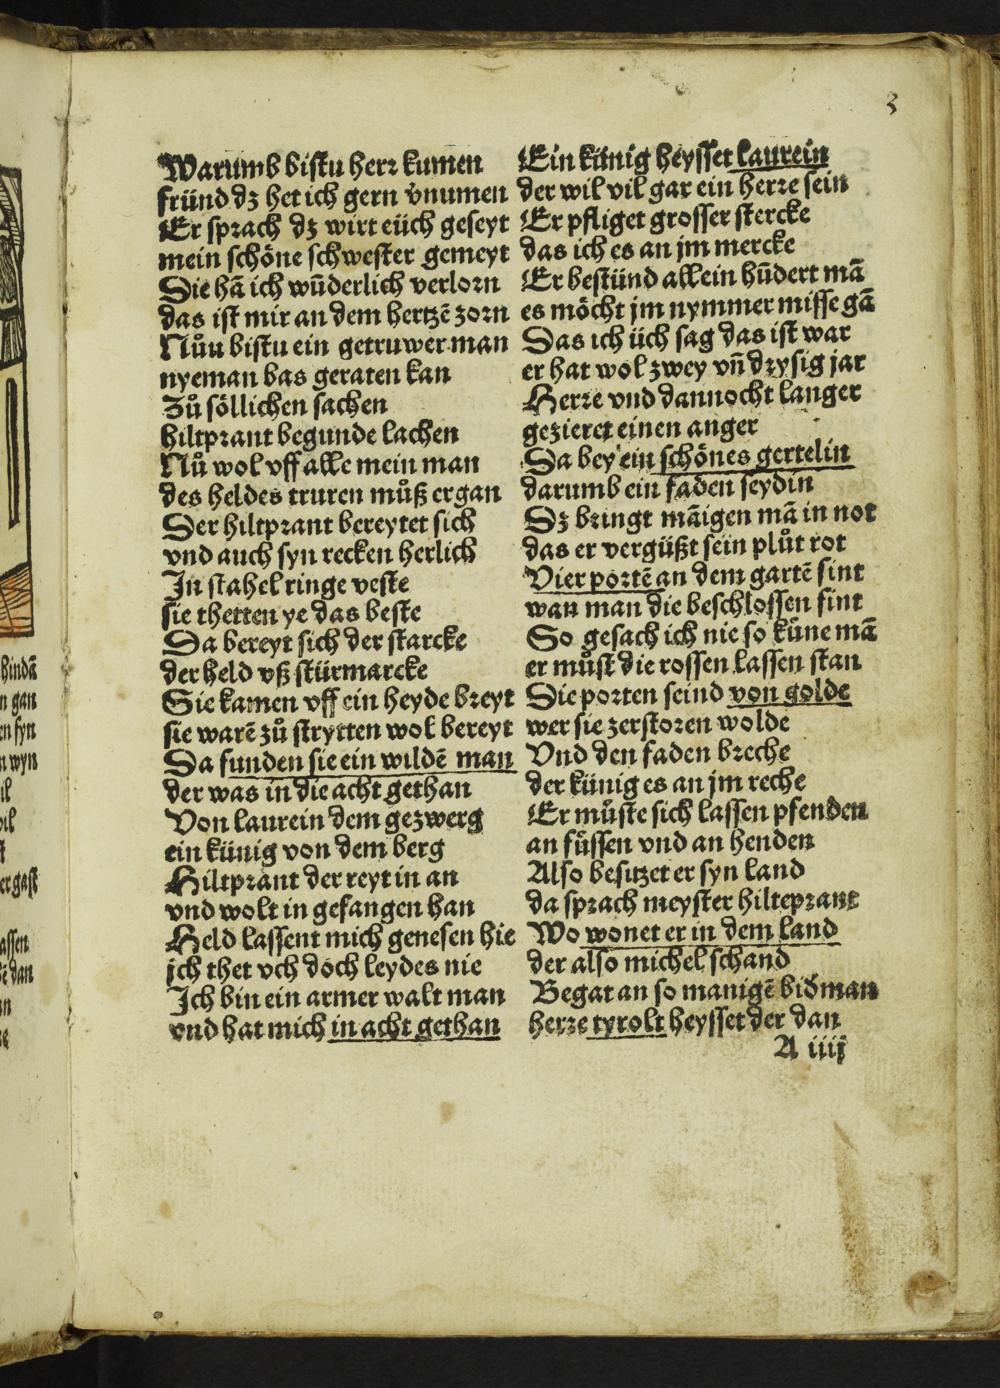 3
Warumb bistu herꝛ kumen
fründ dʒ het ich gern v̄numen
Er spꝛach dʒ wirt eüch geseyt
mein schöne schwester gemeyt
Sie hā ich wūderlich verloꝛn
das ist mir an dem hertzē zoꝛn
Nůn bistu ein getruwer man
nyeman bas geraten kan
Zů söllichen sachen
hiltpꝛant begunde lachen
Nů wol vff alle mein man
des heldes truren můß ergan
Der hiltpꝛant bereytet sich
vnd auch syn recken herlich
In stahel ringe veste
sie thetten ye das beste
Da bereyt sich der starcke
der held vß stürmarcke
Sie kamen vff ein heyde bꝛeyt
sie warē zů strytten wol bereyt
Da funden sie ein wildē man
der was in die acht gethan
Von laurein dem gezwerg
ein künig von dem berg
Hiltpꝛant der reyt in an
vnd wolt in gefangen han
Held lassent mich genesen hie
ich thet vch doch leydes nie
Ich bin ein armer walt man
vnd hat mich in acht gethan
Ein künig heysset laurein
der wil vil gar ein herꝛe sein
Er pfliget grosser stercke
das ich es an jm mercke
Er bestünd allein hūdert mā
es möcht jm nymmer misse gā
Das ich üch sag das ist war
er hat wol zwey vn̄ dꝛysig jar
Herꝛe vnd dannocht langer
gezieret einen anger
Da bey ein schönes gertelin
darumb ein faden seydin
Dʒ bꝛingt māigen mā in not
das er vergüßt sein plůt rot
Vier poꝛtē an dem gartē sint
wan man die beschlossen sint
So gesach ich nie so küne mā
er můst die rossen lassen stan
Die poꝛten seind von golde
wer sie zerstoꝛen wolde
Vnd den faden bꝛeche
der künig es an jm reche
Er müste sich lassen pfenden
an füssen vnd an henden
Also besitzet er syn land
da spꝛach meyster hiltepꝛant
Wo wonet er in dem land
der also michel schand
Begat an so manigē bid̄man
herꝛe tyrolt heysset der dan
A iiij